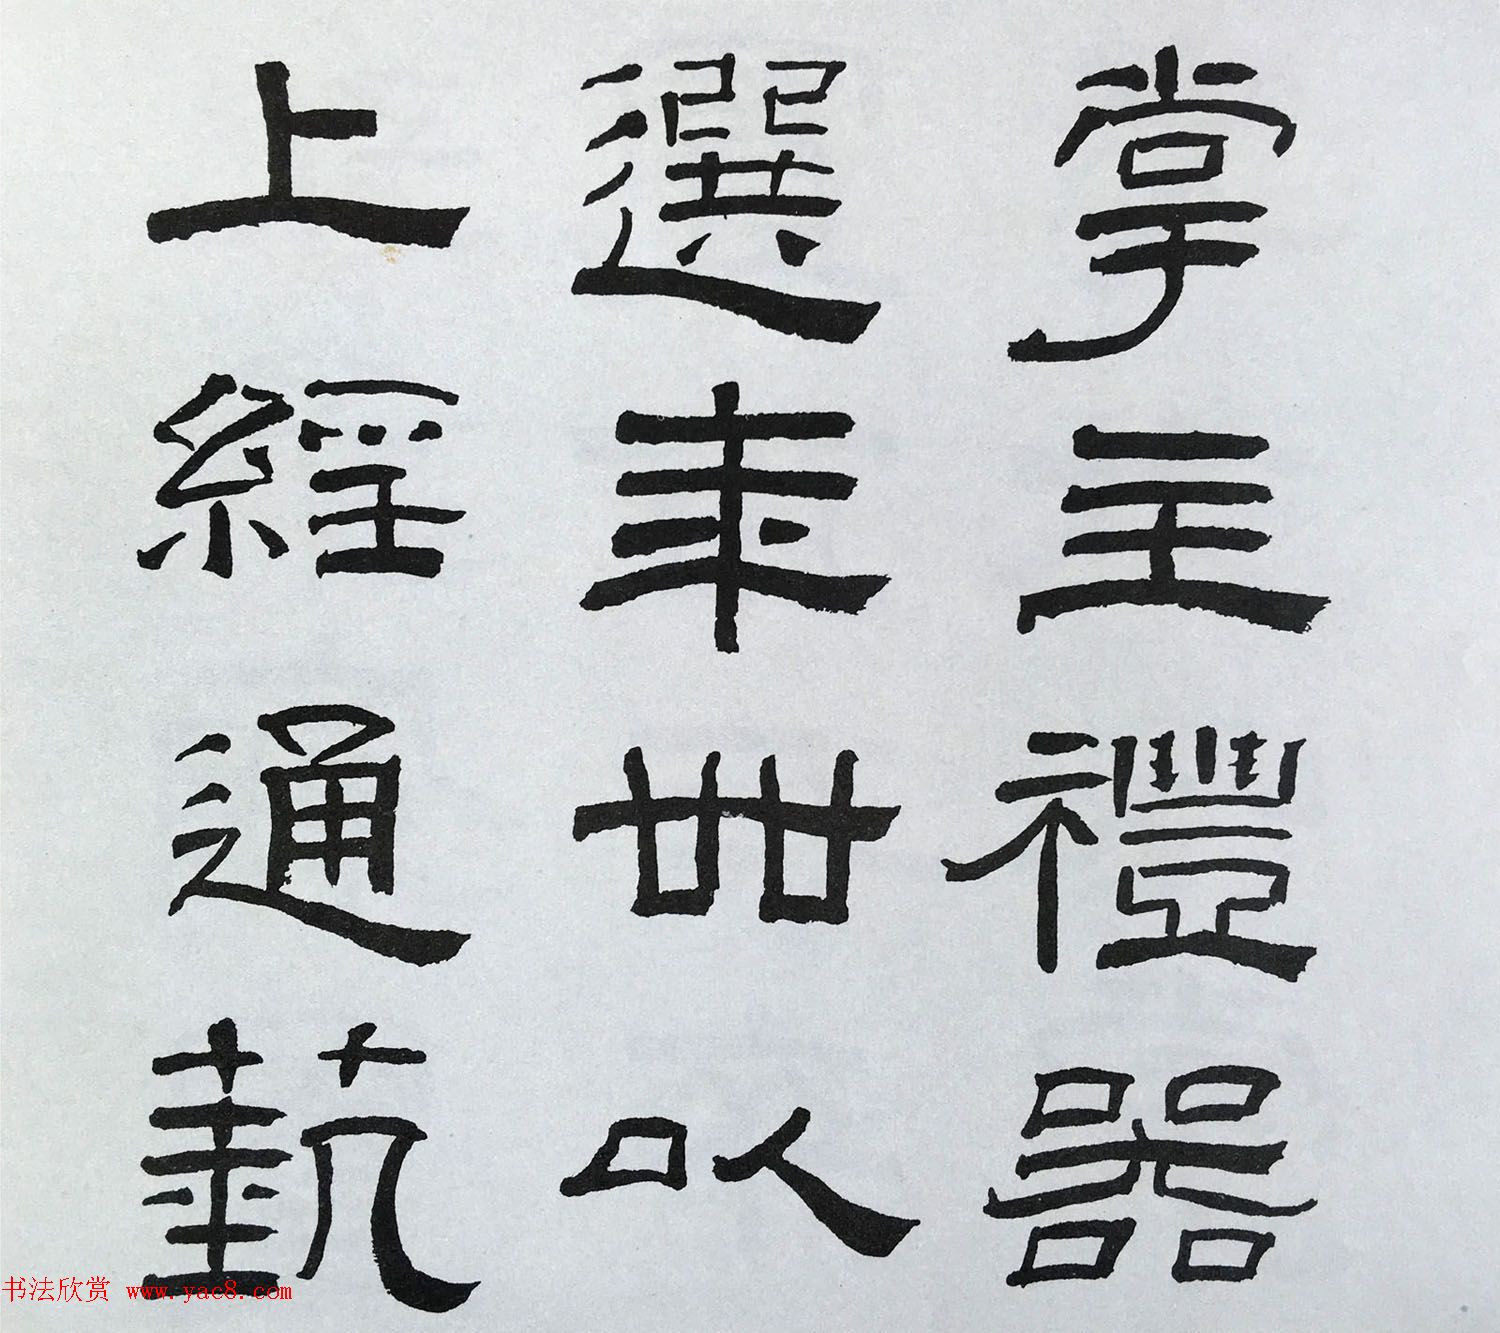 掌主禮器
選年卌以
上經通藝
书法欣赏 www.yac8.com